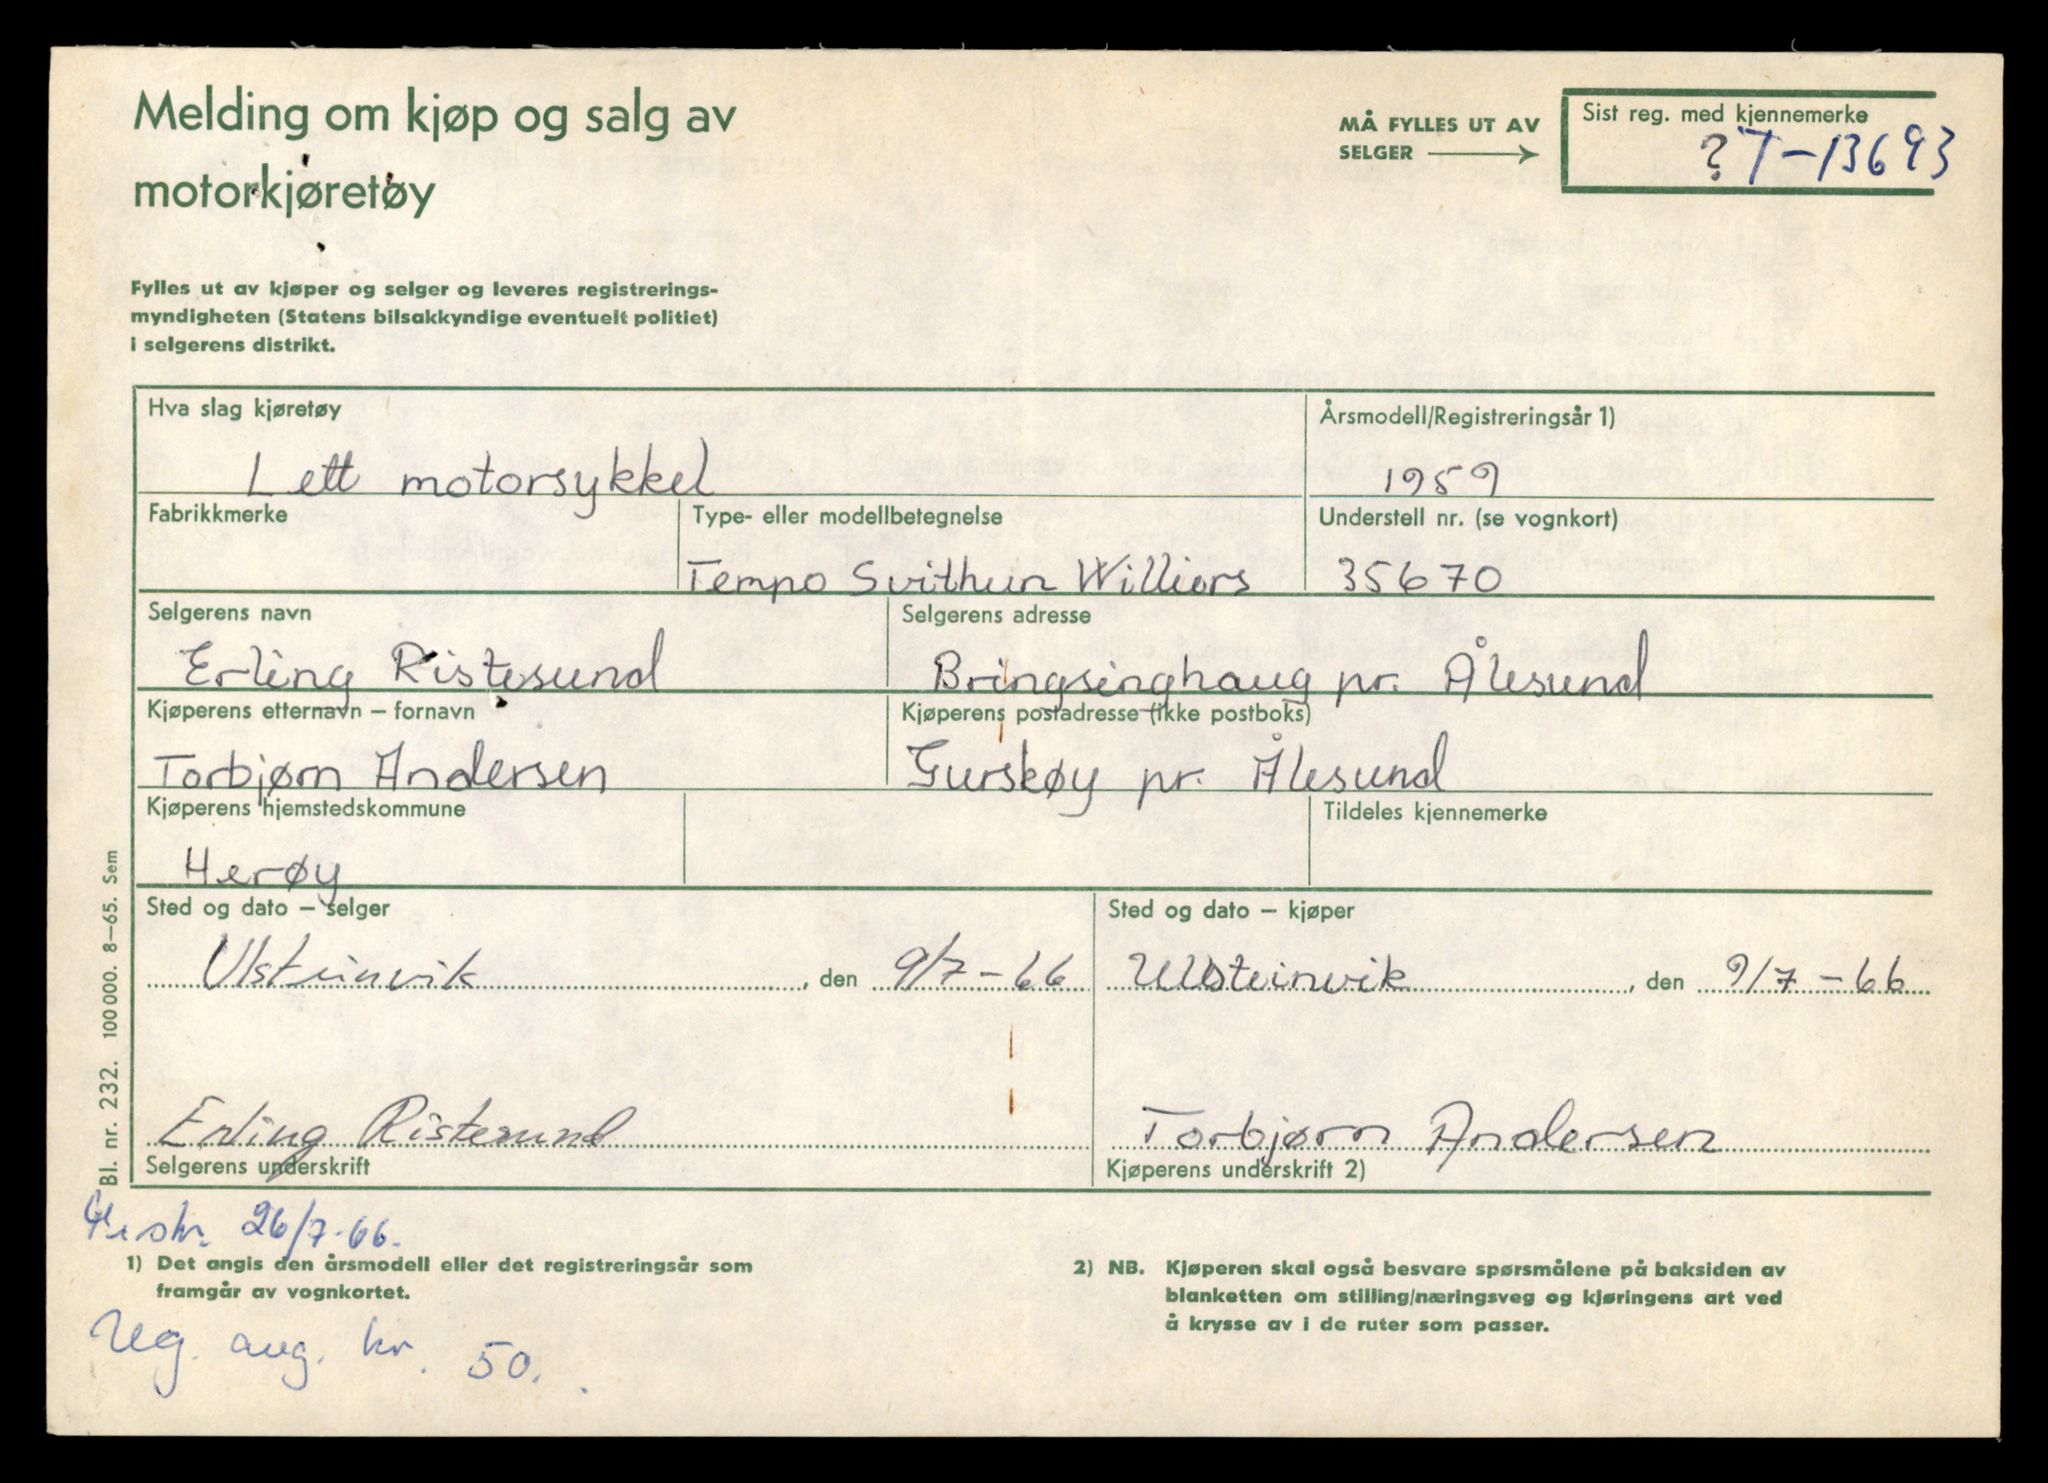 Melding om kjøp og salg av
motorkjøretøy
MÅ FYLLES UT AV
SELGER
Sist reg. med kjennemerke
? T-13693
Fylles ut av kjøper og selger og leveres registrerings-
myndigheten (Statens bilsakkyndige eventuelt politiet)
i selgerens distrikt.
Hva slag kjøretøy
Lett motorsykkel
Årsmodell/Registreringsår 1)
1959
Fabrikkmerke
Type- eller modellbetegnelse
Tempo Svithun Williers
Understell nr. (se vognkort)
35670
Selgerens navn
Erling Ristesund
Selgerens adresse
Bringsinghaug pr. Ålesund
Kjøperens etternavn – fornavn
Torbjørn Andersen
Kjøperens postadresse (ikke postboks)
Gurskøy pr. Ålesund
Kjøperens hjemstedskommune
Herøy
Tildeles kjennemerke
Sted og dato – selger
Ulsteinvik, den 9/7-66
Sted og dato – kjøper
Ulsteinvik, den 9/7-66
Erling Ristesund
Selgerens underskrift
Torbjørn Andersen
Kjøperens underskrift 2)
Bl. nr. 232. 100 000. 8–65. Sem
26/7-66.
1) Det angis den årsmodell eller det registreringsår som
framgår av vognkortet.
2) NB. Kjøperen skal også besvare spørsmålene på baksiden av
blanketten om stilling/næringsveg og kjøringens art ved
å krysse av i de ruter som passer.
kr. 50.